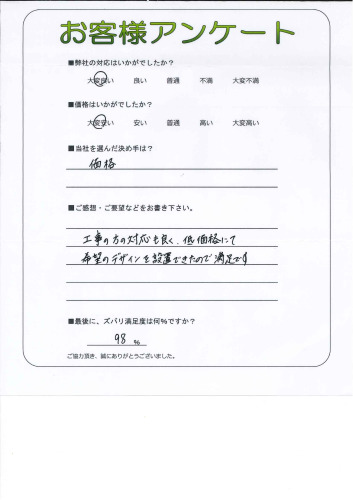 お客様アンケート
■弊社の対応はいかがでしたか？
大変良い 良い 普通 不満 大変不満
■価格はいかがでしたか？
大変安い 安い 普通 高い 大変高い
■当社を選んだ決め手は？
価格
■ご感想・ご要望などをお書き下さい。
工事の方の対応も良く、低価格にて
希望のデザインを設置できたので満足です
■最後に、ズバリ満足度は何%ですか？
98 %
ご協力頂き、誠にありがとうございました。